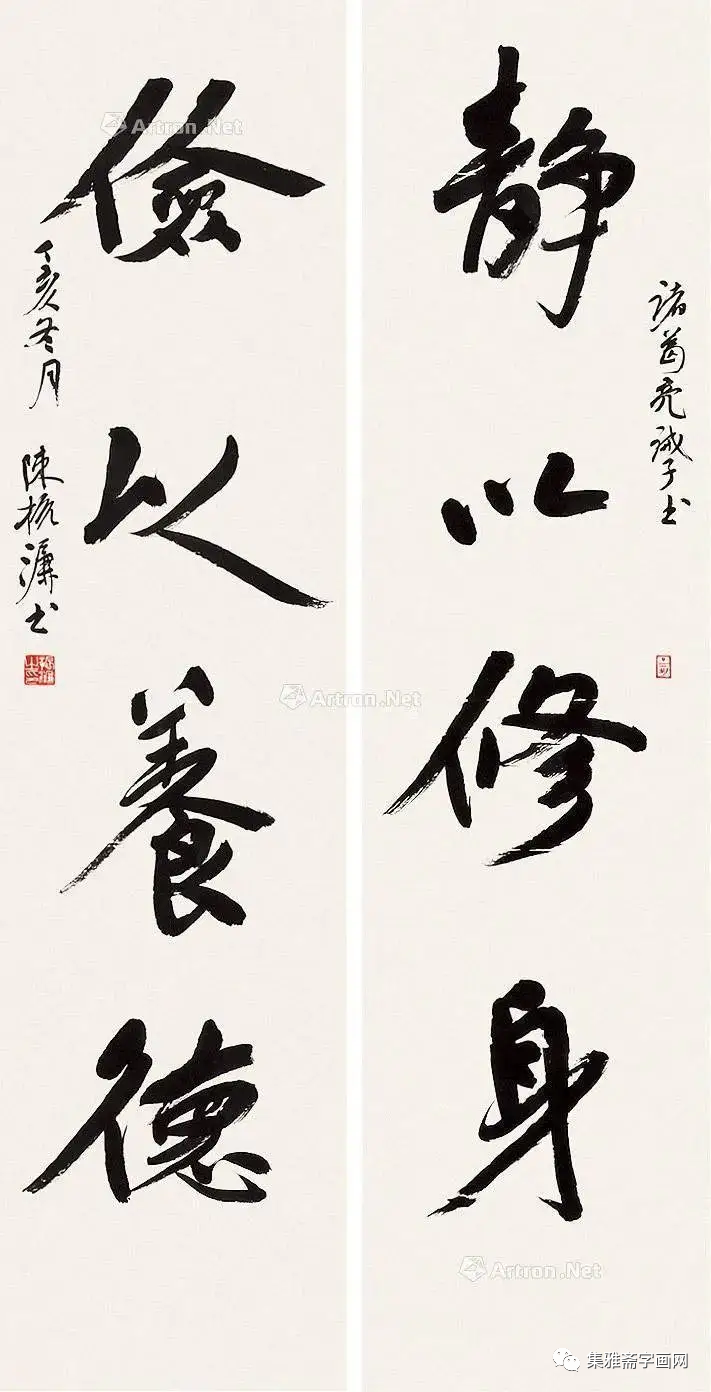 諸葛亮誡子书
静以修身
儉以養德
丁亥冬月 陳振濂书
Artron.Net
Artron.Net
Artron.Net
集雅斋字画网